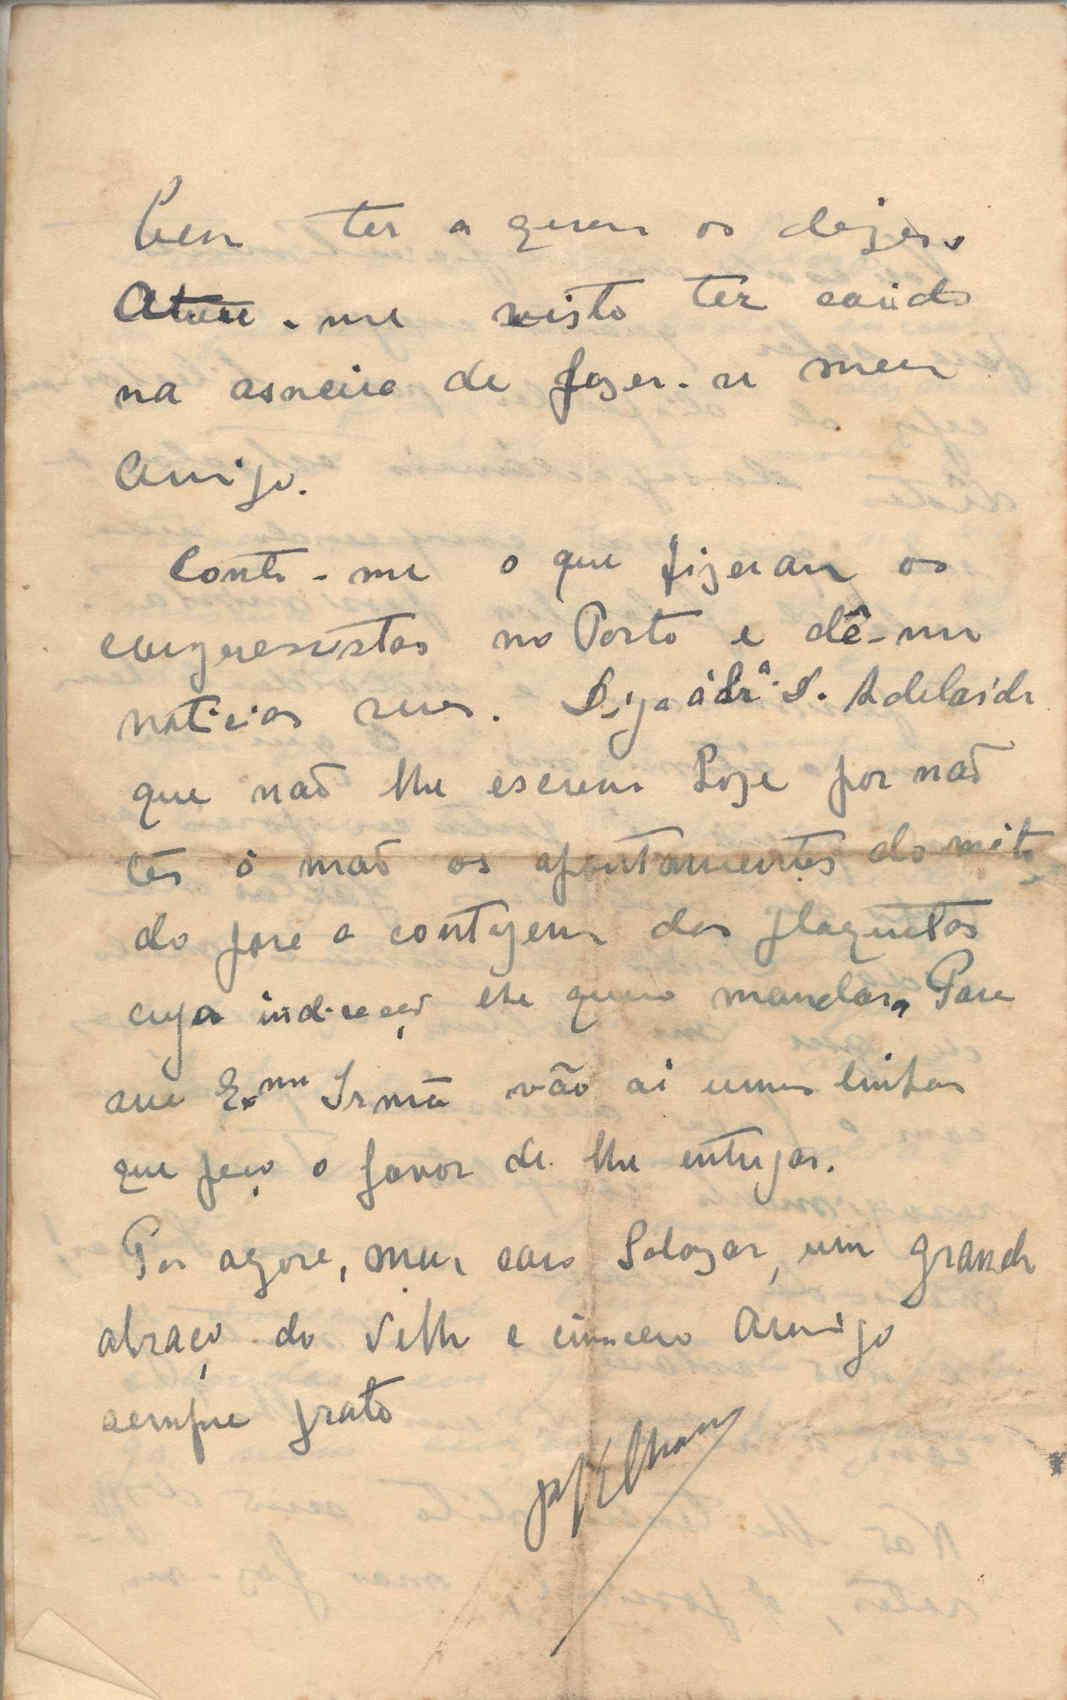 bem ter a quem os dizer.
Ature-me visto ter caido
na asneira de fazer-se meu
Amigo.
Conte-me o que fizeram os
congressistas no Porto e dê-me
noticias suas. Diga á Srª. D. Adelaide
que não lhe escrevi hoje por não
ter á mão os apontamentos do meto-
do para a contagem das plaquetas
cuja indicação lhe quero mandar. Para
sua Exma Irmã vão ai umas linhas
que peço o favor de lhe entregar.
Por agora, meu caro Salazar, um grande
abraço do velho e sincero Amigo
sempre grato